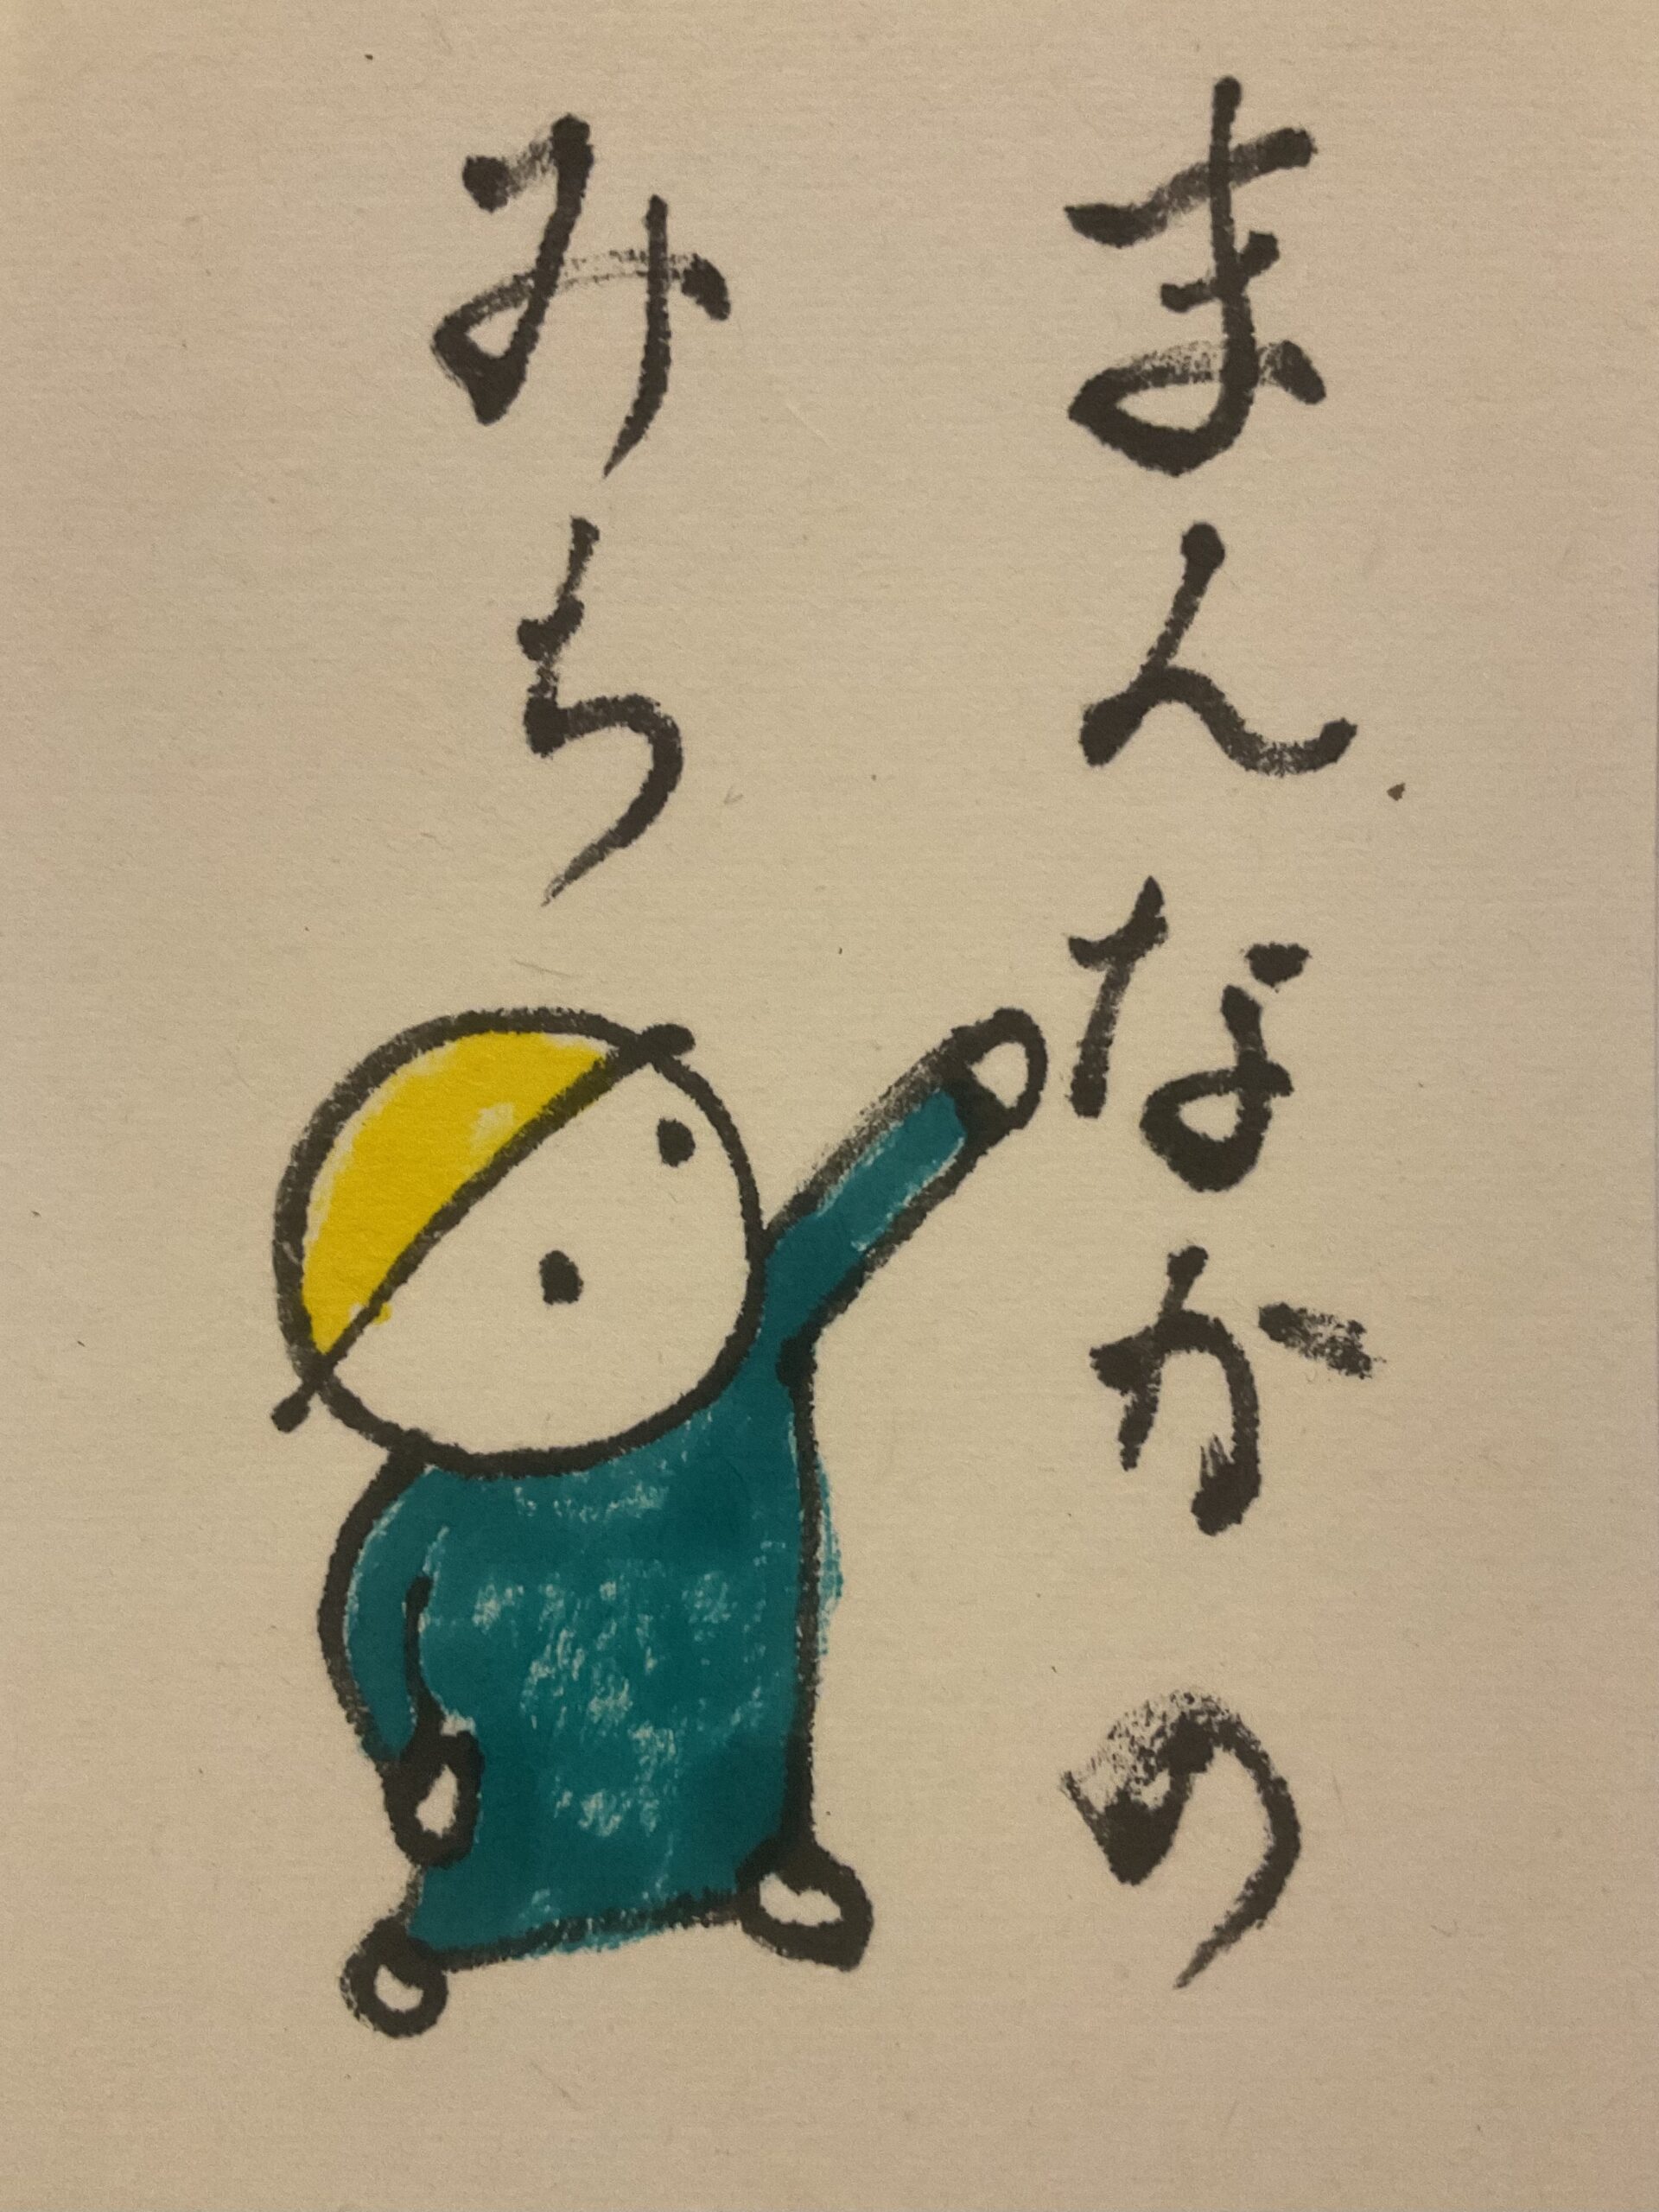 まんなかの
みち